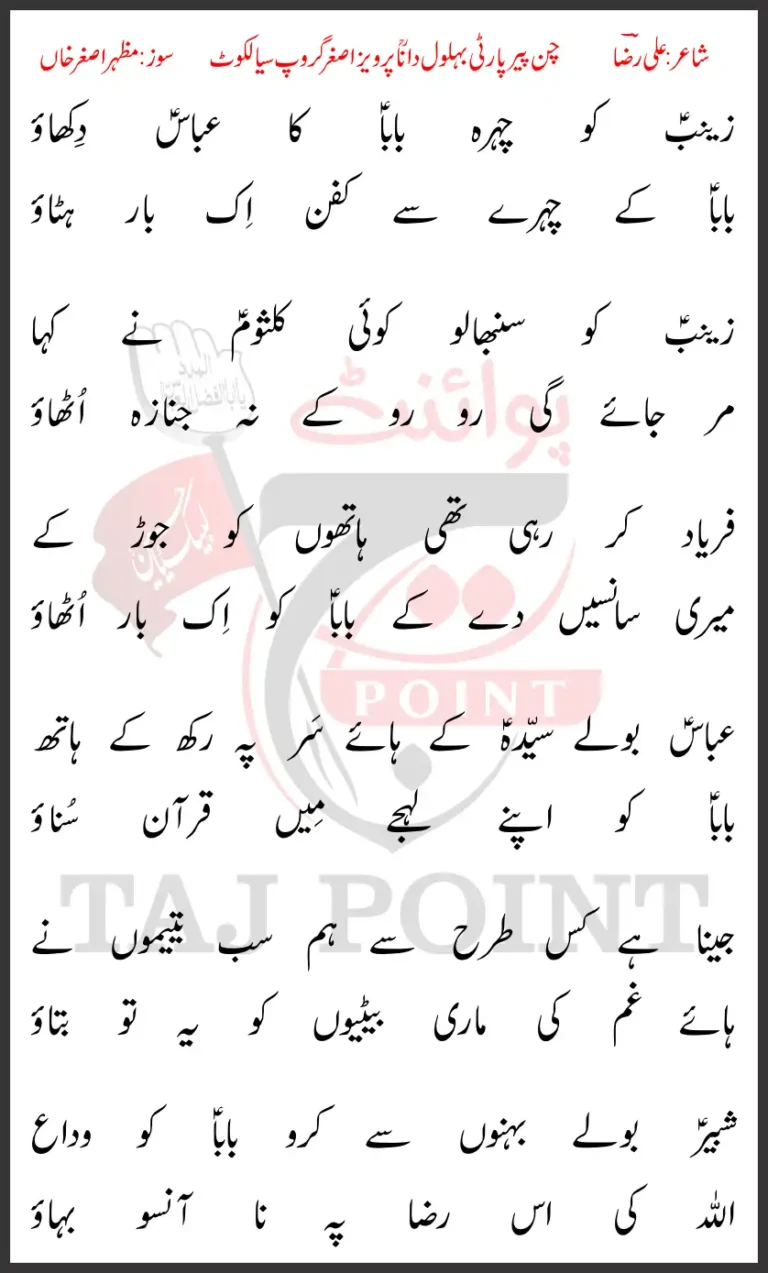 شاعر: علی رضاؔ چن پیر پارٹی بہلول داناؒ پرویز اصغر گروپ سیالکوٹ سوز: مظہر اصغر خاں
زینبؑ کو چہرہ باباؑ کا عباسؑ دِکھاؤ
باباؑ کے چہرے سے کفن اِک بار ہٹاؤ
زینبؑ کو سنبھالو کوئی کلثومؑ نے کہا
مر جائے گی رو رو کے نہ جنازہ اُٹھاؤ
فریاد کر رہی تھی ہاتھوں کو جوڑ کے
میری سانسیں دے کے باباؑ کو اِک بار اُٹھاؤ
عباسؑ بولے سیّدہؑ کے ہائے سَر پہ رکھ کے ہاتھ
باباؑ کو اپنے لہجے مِیں قرآن سُناؤ
جینا ہے کس طرح سے ہم سب یتیموں نے
ہائے غم کی ماری بیٹیوں کو یہ تو بتاؤ
شبیرؑ بولے بہنوں سے کرو باباؑ کو وداع
اللہ کی اس رضا پہ نا آنسو بہاؤ
المدد
یا ابالفضل العباسؑ
لبیک یا حسینؑ
پوائنٹ
تاج
POINT
TAJ POINT